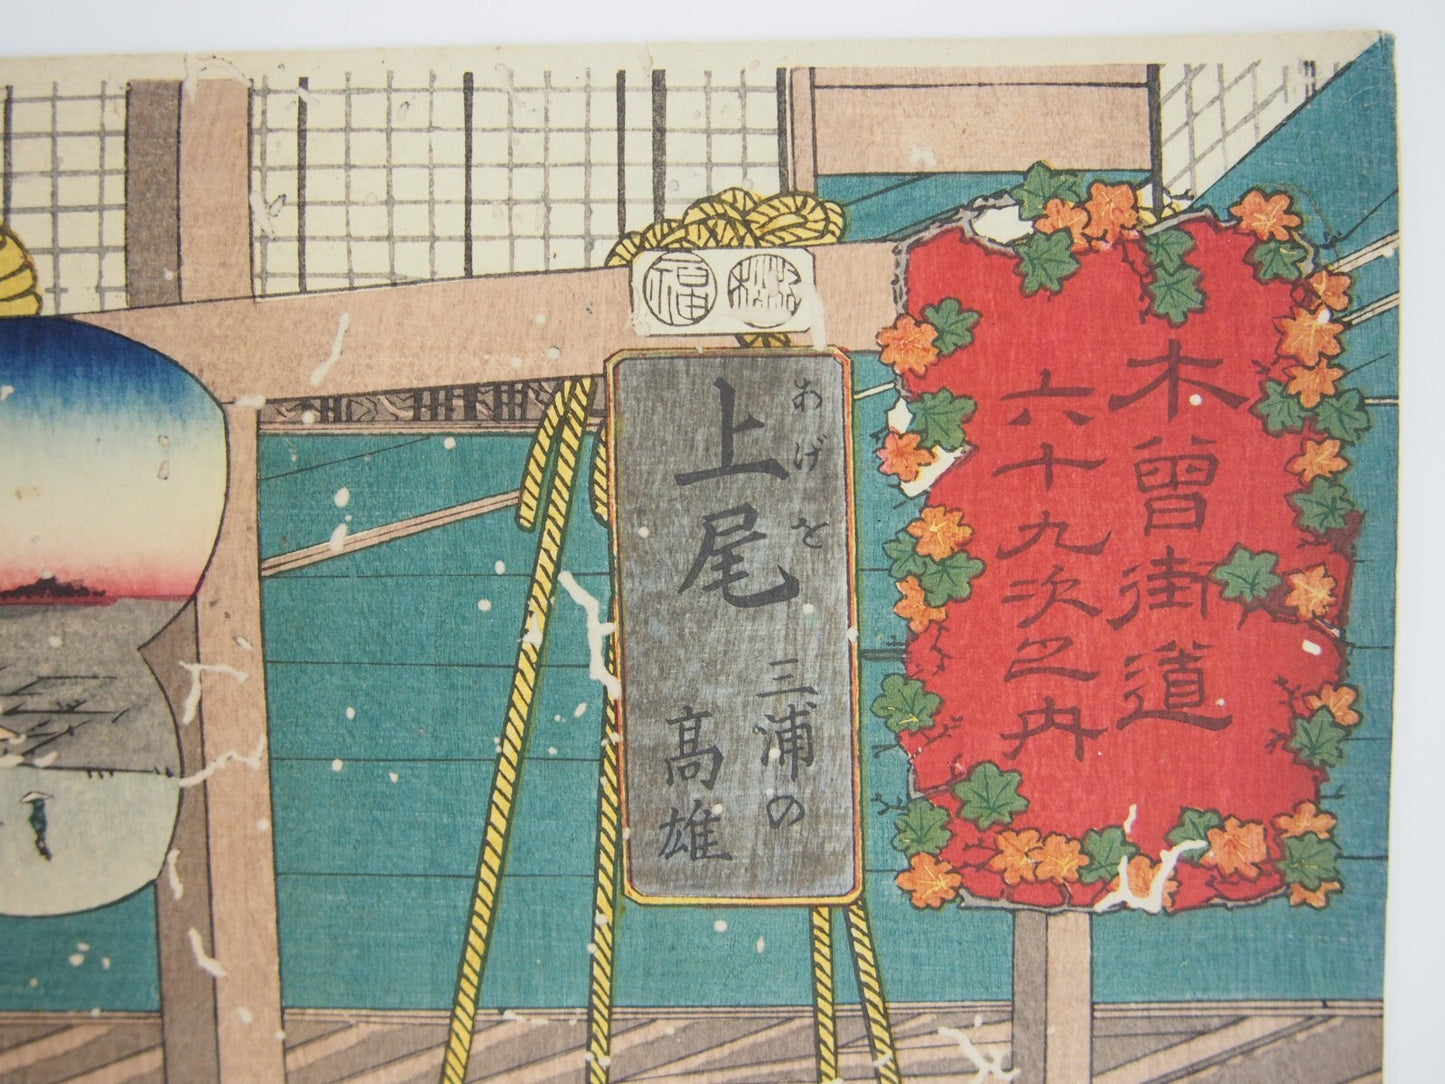 木曾街道
六十九次之内
上尾
あげを
三浦の
高雄
福